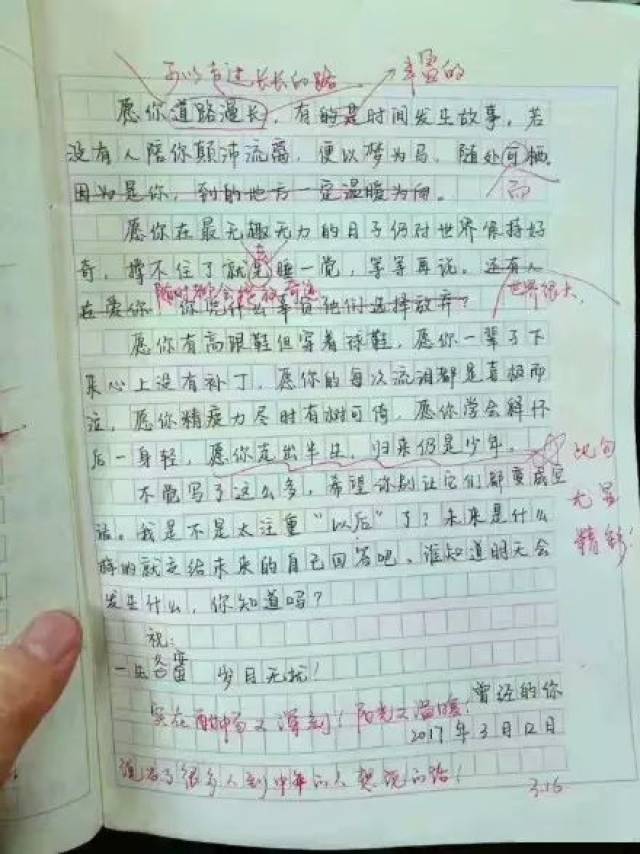 可以走过长长的路 丰富的
愿你道路漫长，有的是时间发生故事，若
没有人陪你颠沛流离，便以梦为马，随处可栖。
因为是你，到的地方一定温暖为向。
而
愿你在最无趣无力的日子仍对世界保持好
奇，撑不住了就去睡一觉，等等再说。还有人
在爱你 你凭什么辜负他们选择放弃？
随时都会 奇迹
世界很大，
愿你有高跟鞋但穿着球鞋，愿你一辈子下
来心上没有补丁，愿你的每次流泪都是喜极而
泣，愿你精疲力尽时有树可倚，愿你学会释怀
后一身轻，愿你走出半生，归来仍是少年。
此句
尤显
精彩！
不觉写了这么多，希望你别让它们都变成空
话。我是不是太注重“以后”了？未来是什么
样的就交给未来的自己回答吧，谁知道明天会
发生什么，你知道吗？
祝：
一生 岁月无扰！
曾经的你
实在 又深刻！阳光又温暖！
2017年3月12日
说出了很多人到中年的人想说的路！
3.16